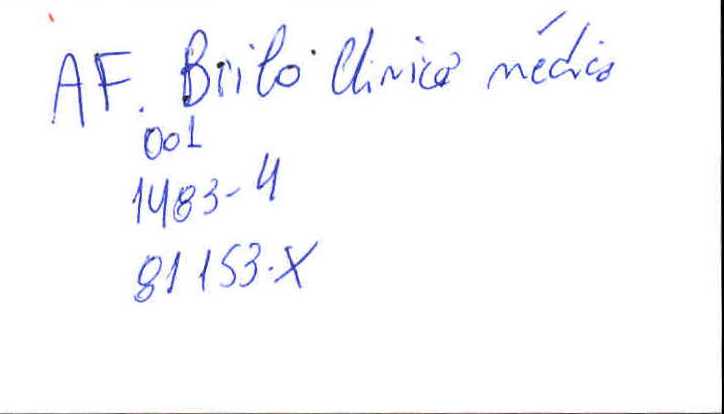 AF. Brito Clinica médica
001
1483-4
81153-X